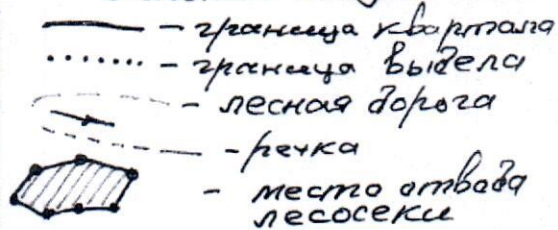 — граница квартала
— граница выдела
— лесная дорога
— речка
— место отвода
лесосеки